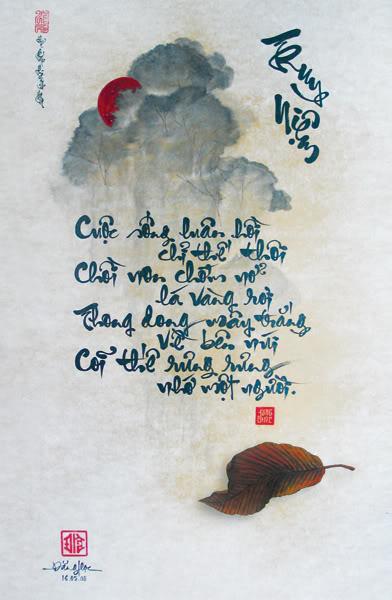 Truy Niệm
Cuộc sống luân hồi
chỉ thế thôi
Chồi non chớm nở
lá vàng rơi
Thong dong mây trắng
về bên núi
Cõi thế rưng rưng
nhớ một người.
Đăng Học